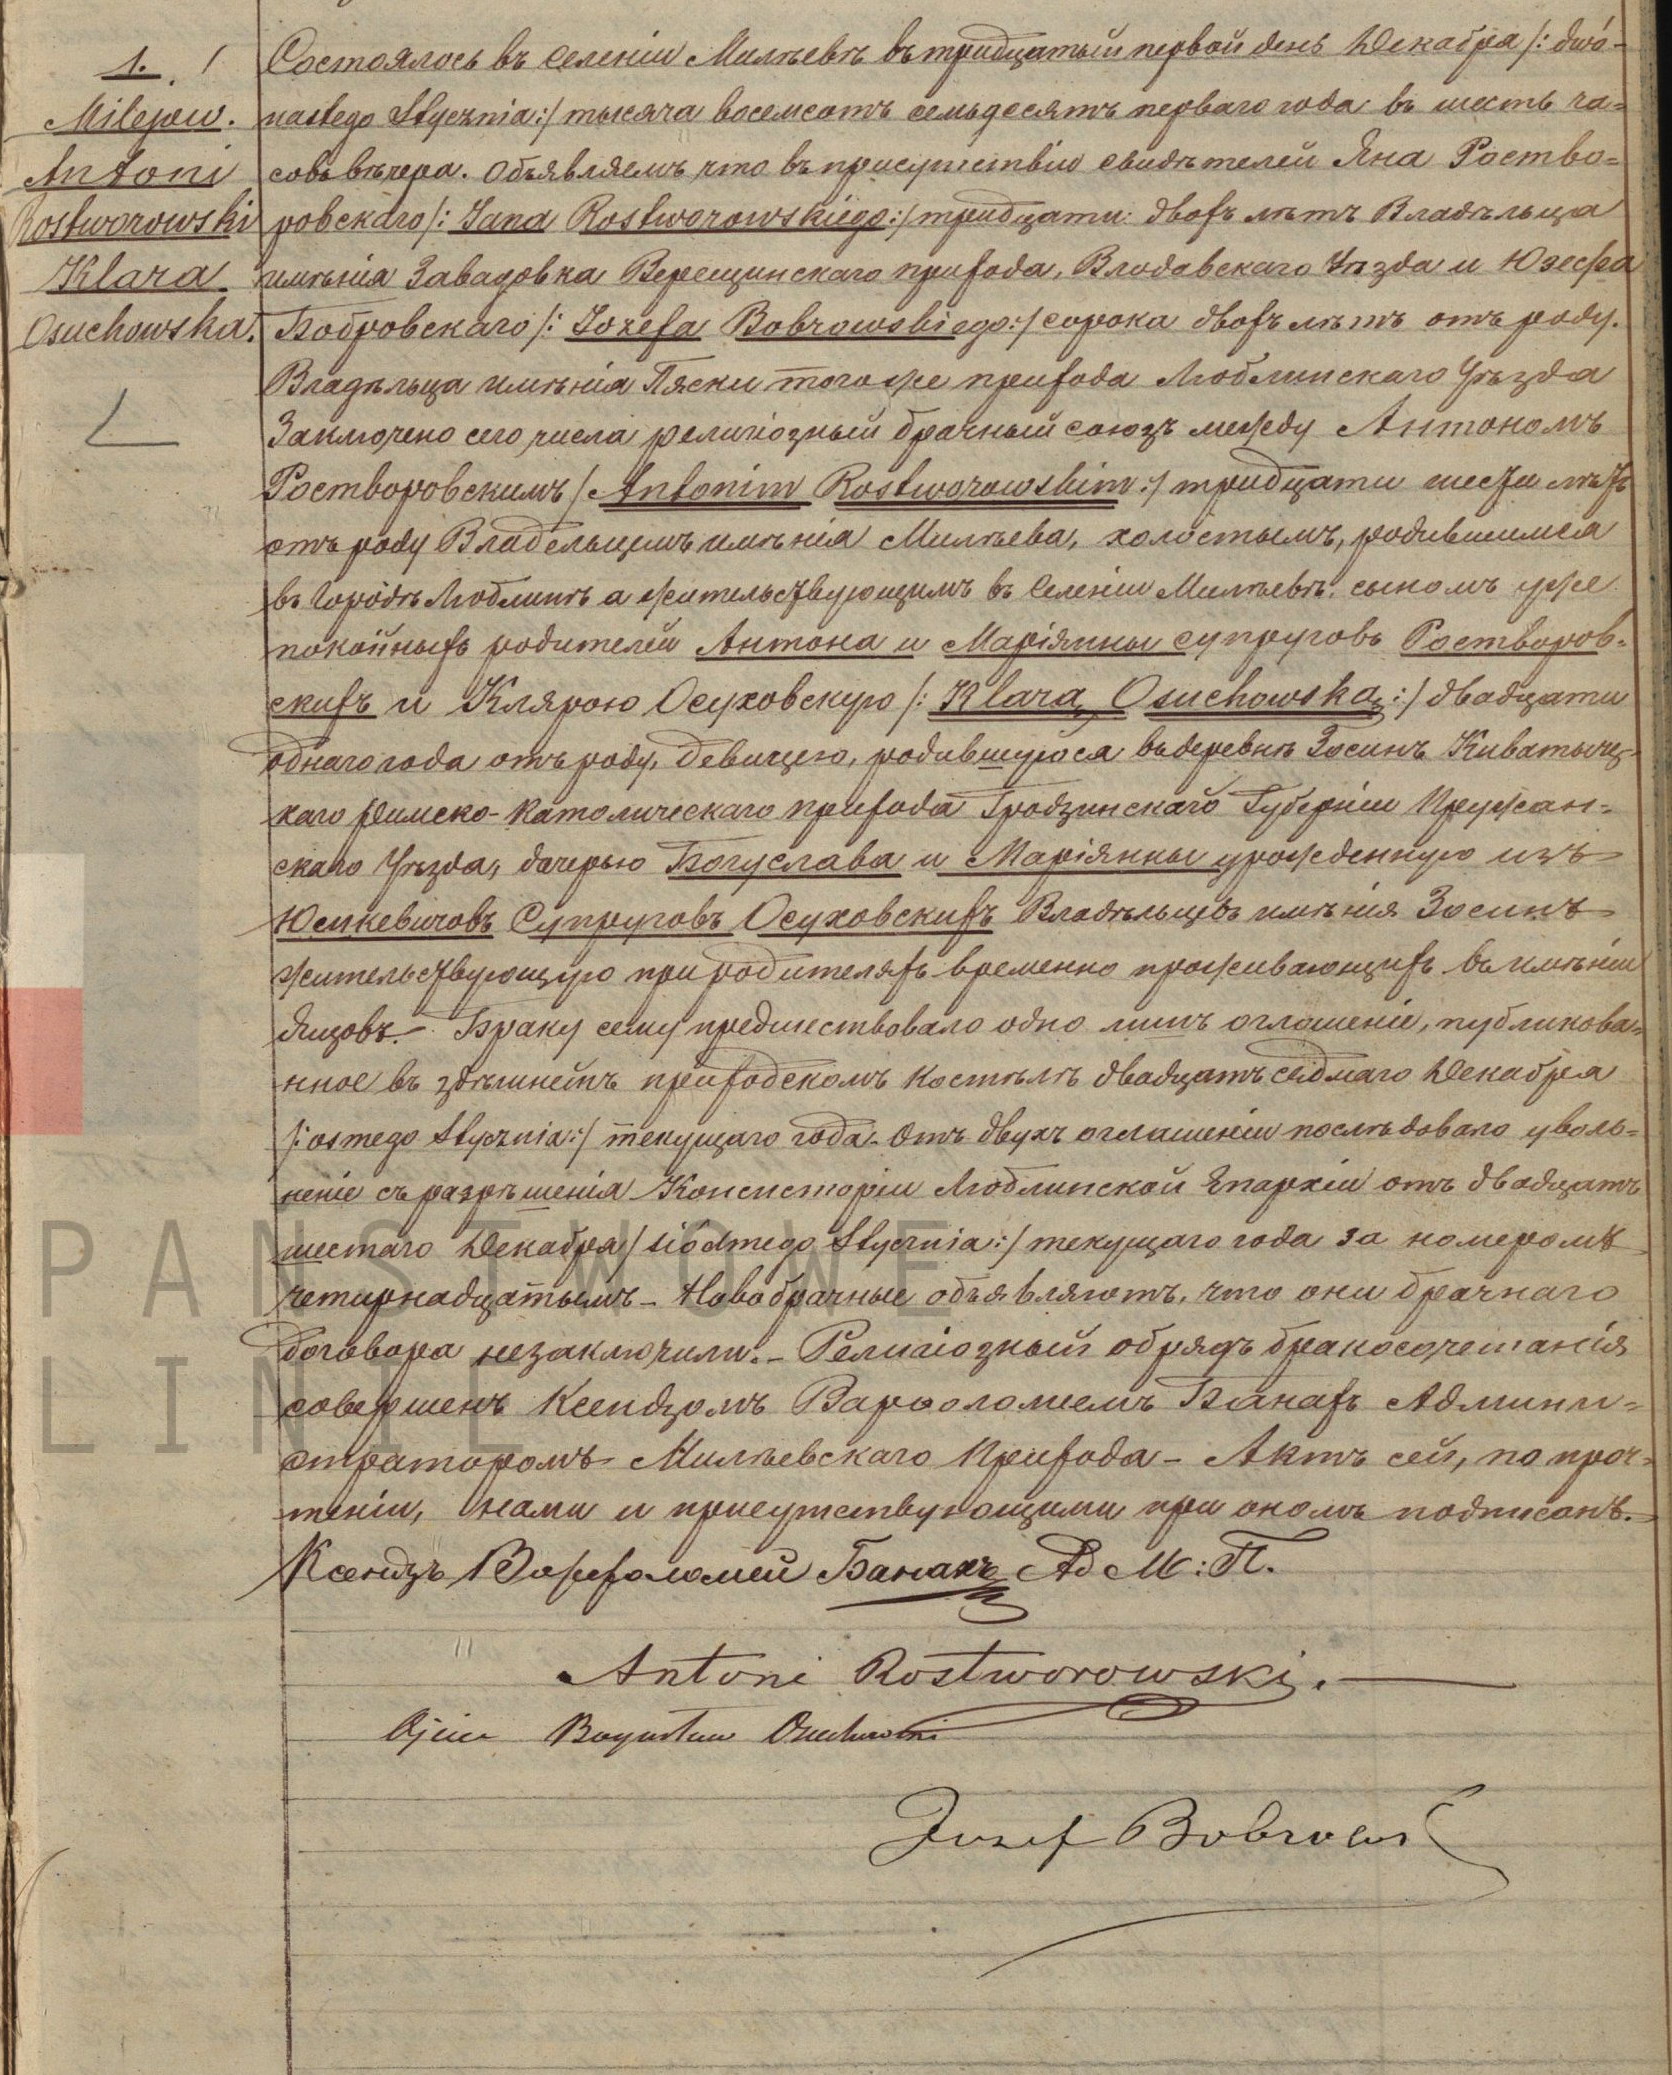 1. 1
Milejow.
Antoni
Rostworowski
Klara
Osuchowska.
Состоялось въ селеніи Милѣевѣ въ тридцатый первой день Декабря /: dwó-
nastego Stycznia:/ тысяча восемсотъ семьдесятъ перваго года въ шесть ча=
совъ вѣчера. Объявляемъ что въ присутствіи свидѣтелей Яна Роство=
ровскаго /: Jana Rostworowskiego:/ тридцати двохъ лѣтъ Владѣльца
имѣнія Завадовка Верещинскаго прихода, Влодавскаго Уѣзда и Юзефа
Бобровскаго /: Jozefa Bobrowskiego:/ сорока двохъ лѣтъ отъ роду.
Владѣльца имѣнія Пяски тогоже прихода Люблинскаго Уѣзда
Заключено сего числа религіозный брачный союзъ между Антономъ
Ростворовскимъ / Antonim Rostworowskim:/ тридцати шести лѣтъ
отъ роду Владельцемъ имѣнія Милѣева, холостымъ, родившимся
въ городѣ Люблинѣ а жительствующимъ въ селеніи Милѣевѣ. сыномъ уже
покойныхъ родителей Антона и Маріянны супруговъ Ростворов-
скихъ и Клярою Осуховскую /: Klarą Osuchowską:/ двадцати
однаго года отъ роду, девицею, родившуюся въ деревнѣ Зосинъ Киватыче-
каго Римско-Католическаго прихода Гродзинскаго Губерніи Пружан-
скаго Уѣзда, дочерью Богуслава и Маріянны урожденную изъ
Юсикевичовъ Супруговъ Осуховскихъ Владѣльцовъ имѣнія Зосинъ
жительствующую при родителяхъ временно проживающихъ въ имѣніи
Ящовъ. Браку сему предшествовало одно лишъ оглошеніе, публикова-
нное въ здѣшнемъ приходскомъ костѣлѣ двадцать седмаго Декабря
/: osmego Stycznia:/ текущаго года. Отъ двухъ оглашеніи послѣдовало уволь=
неніе съ разрѣшенія Консисторіи Люблинской Епархіи отъ двадцать
шестаго Декабря / siódmego Stycznia:/ текущаго года за номеромъ
четырнадцатымъ - Новобрачные объявляютъ, что они брачнаго
договора незаключили. - Религіозный обрядъ бракосочетанія
совершенъ Ксендзомъ Варфоломеемъ Банахъ Админи=
стораторомъ Милѣевскаго Прихода - Актъ сей, по проч=
теніи, нами и присутствующими при ономъ подписанъ.
Ксендзъ Варфоломей Банахъ Ад М: П.
Antoni Rostworowski.
Ojciec Bogusław Osuchowski
Józef Bobrowski
PAŃSTWOWE
LINIE